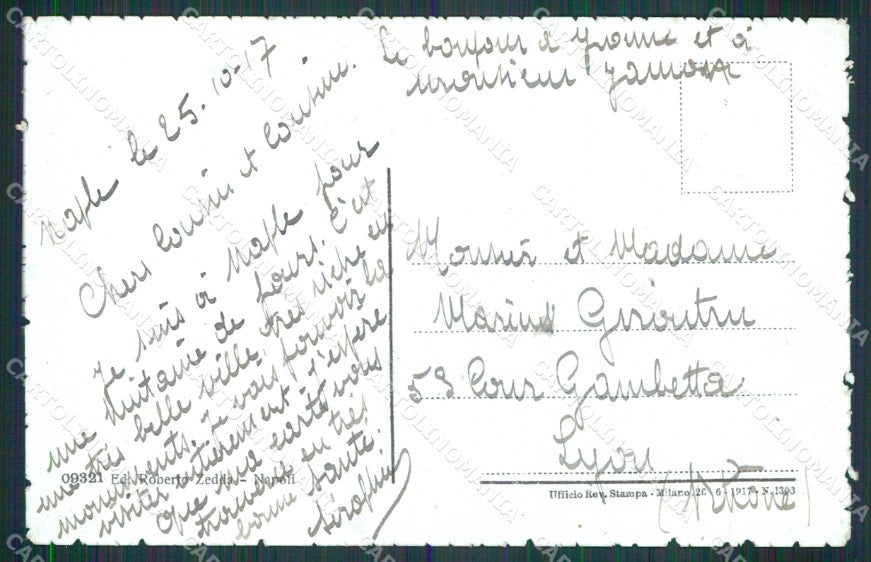 Naple le 25-10-17
Chers Cousins et Cousine.
Je suis à Naple pour
une huitaine de jours. C'est
une très belle ville, très riche en
monuments, je vais pouvoir la
visiter entièrement. J'espère
que ma carte vous
trouvera en très
bonne santé.
Seraphin
Le bonjour à Yvonne et à
Monsieur
Monsieur et Madame
Marius
59 Cour Gambetta
Lyon
(Rhône)
09321 Ed. Roberto Zedda - Napoli
Ufficio Rev. Stampa - Milano 26-6-1917 - N. 1393
CARTOLINOMANIA